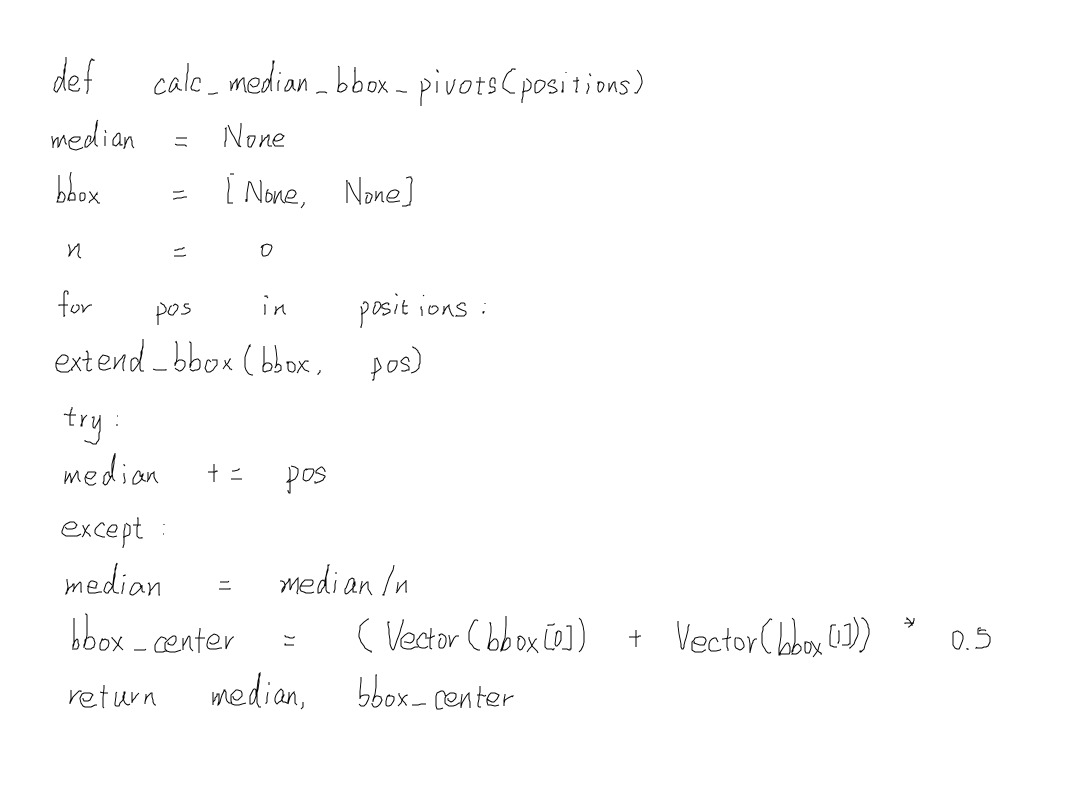 def calc_median_bbox_pivots(positions)
median = None
bbox = [None, None]
n = 0
for pos in positions:
extend_bbox(bbox, pos)
try:
median += pos
except:
median = median/n
bbox_center = (Vector(bbox[0]) + Vector(bbox[1])) * 0.5
return median, bbox_center